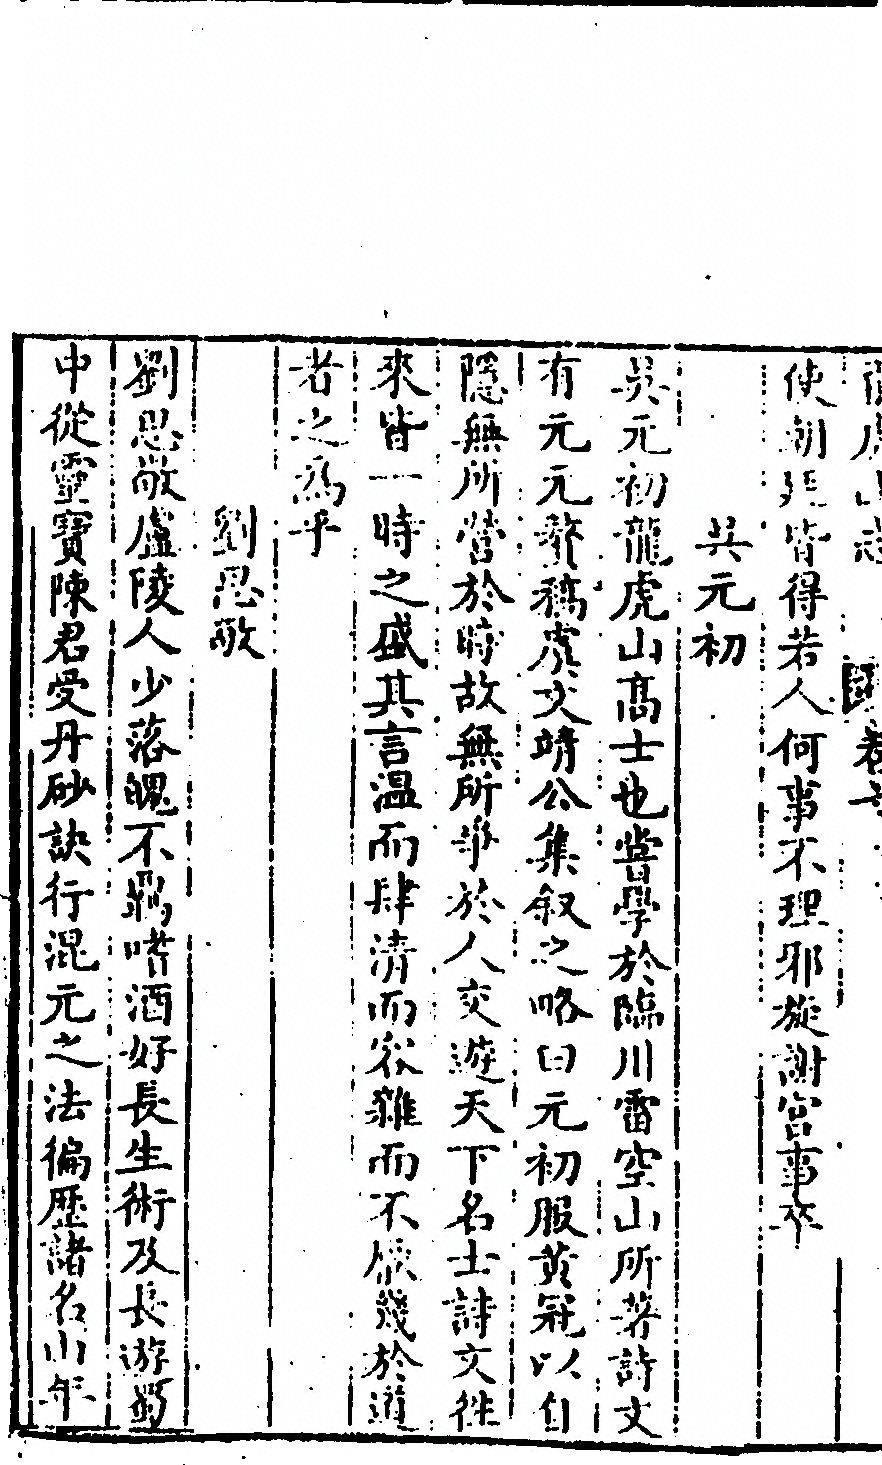 使朝廷皆得若人何事不理邪旋謝宮事卒
吳元初
吳元初龍虎山髙士也嘗學於臨川雷空山所著詩文
有元元贅稿虞文靖公集叙之略曰元初服黄冠以自
隱無所營於時故無所爭於人交遊天下名士詩文徃
來皆一時之盛其言温而肆清而容雜而不厭幾於道
者之為乎
劉思敬
劉思敬廬陵人少落魄不羈嗜酒好長生術及長游蜀
中從靈寶陳君受丹砂訣行混元之法徧歷諸名山年